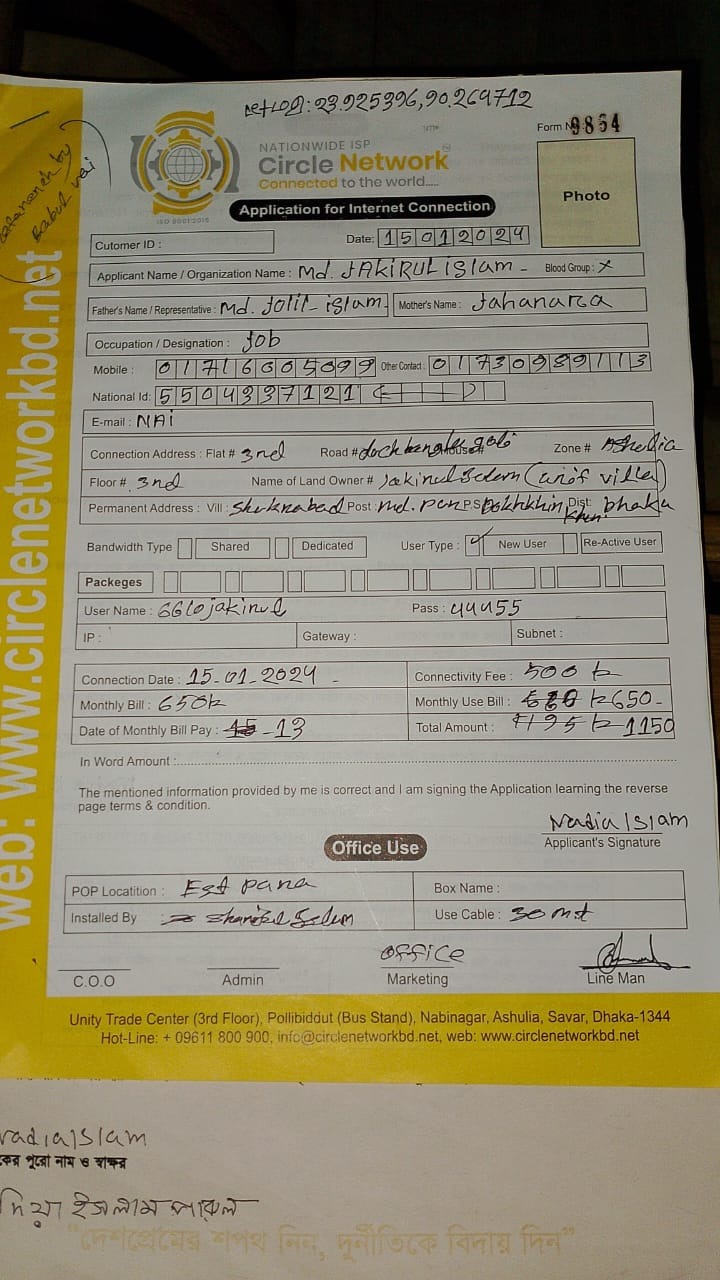 লোকেশন: 23.925396,90.269712
NATIONWIDE ISP
Form No 9864
Circle Network
Connected to the world.....
ISO 9001:2015
Reference by
Babul vai
Photo
Application for Internet Connection
Cutomer ID :
Date: 15012024
Applicant Name / Organization Name : Md. JAKIRUL islam - Blood Group : X
Father's Name / Representative : Md. Jolil islam Mother's Name : Jahanara
Occupation / Designation : Job
Mobile : 01716605099 Other Contact : 01730989113
National Id: 5504337121
E-mail : NAi
Connection Address : Flat # 3nd Road # House# Zone #
Floor # 3nd Name of Land Owner #
Permanent Address : Vill : Post : P.S Dist:
Bandwidth Type Shared Dedicated User Type : ✓ New User Re-Active User
Packeges
User Name : 6610jakirul Pass : 44455
IP : Gateway : Subnet :
Connection Date : 15-01-2024 - Connectivity Fee : 500 tk
Monthly Bill : 650tk Monthly Use Bill : tk 650-
Date of Monthly Bill Pay : 15 -13 Total Amount : 1195 tk 1150
In Word Amount :
The mentioned information provided by me is correct and I am signing the Application learning the reverse
page terms & condition.
Nadia Islam
Applicant's Signature
Office Use
POP Locatition : Est para Box Name :
Installed By : Use Cable : 30 mt
office
C.O.O Admin Marketing Line Man
Unity Trade Center (3rd Floor), Pollibiddut (Bus Stand), Nabinagar, Ashulia, Savar, Dhaka-1344
Hot-Line: + 09611 800 900, info@circlenetworkbd.net, web: www.circlenetworkbd.net
web: www.circlenetworkbd.net
Nadia Islam
কের পুরো নাম ও স্বাক্ষর
দিয়া ইসলাম পারুল
“দেশপ্রেমের শপথ নিন, দুর্নীতিকে বিদায় দিন”